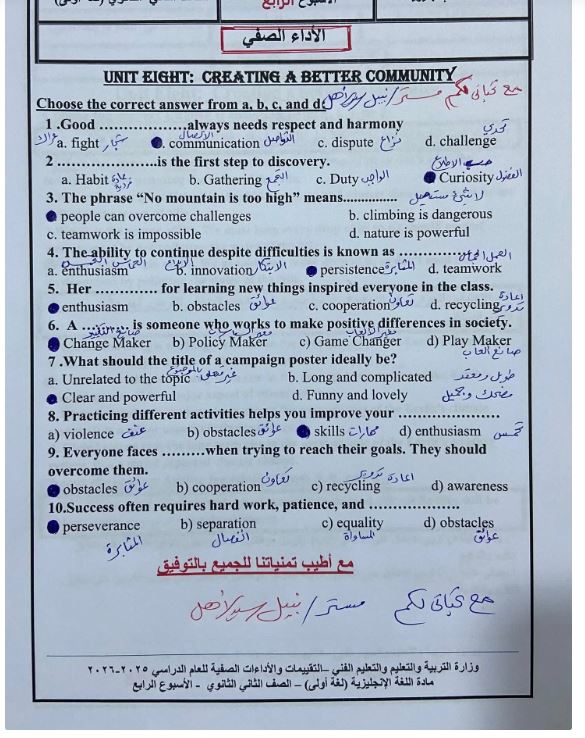 الأسبوع الرابع
الأداء الصفي
UNIT EIGHT: CREATING A BETTER COMMUNITY
مع تحياتى لكم مستر/ نبيل
Choose the correct answer from a, b, c, and d:
1 .Good ……………..always needs respect and harmony
a. fight شجار communication التواصل c. dispute نزاع d. challenge تحدي
2 ……………….is the first step to discovery.
a. Habit عادة b. Gathering التجمع c. Duty الواجب Curiosity الفضول حب الاطلاع
3. The phrase “No mountain is too high” means............... لا شئ مستحيل
people can overcome challenges b. climbing is dangerous
c. teamwork is impossible d. nature is powerful
4. The ability to continue despite difficulties is known as ………………
a. enthusiasm الحماس b. innovation الابتكار persistence المثابرة d. teamwork العمل الجماعى
5. Her ………… for learning new things inspired everyone in the class.
enthusiasm b. obstacles عوائق c. cooperation تعاون d. recycling إعادة تدوير
6. A ………… is someone who works to make positive differences in society.
Change Maker b) Policy Maker c) Game Changer d) Play Maker
صانع العاب
7 .What should the title of a campaign poster ideally be?
a. Unrelated to the topic غير متعلق بالموضوع b. Long and complicated طويل ومعقد
Clear and powerful d. Funny and lovely مضحك وجميل
8. Practicing different activities helps you improve your ………………
a) violence عنف b) obstacles عوائق skills مهارات d) enthusiasm تحمس
9. Everyone faces ………when trying to reach their goals. They should
overcome them.
obstacles عوائق b) cooperation تعاون c) recycling اعادة تدوير d) awareness
10.Success often requires hard work, patience, and ………………
perseverance b) separation c) equality d) obstacles
المثابرة انفصال المساواة عوائق
مع أطيب تمنياتنا للجميع بالتوفيق
مع تحياتى لكم مستر/ نبيل
وزارة التربية والتعليم والتعليم الفني –التقييمات والأداءات الصفية للعام الدراسي ٢٠٢٥-٢٠٢٦
مادة اللغة الإنجليزية (لغة أولى) – الصف الثاني الثانوي - الأسبوع الرابع